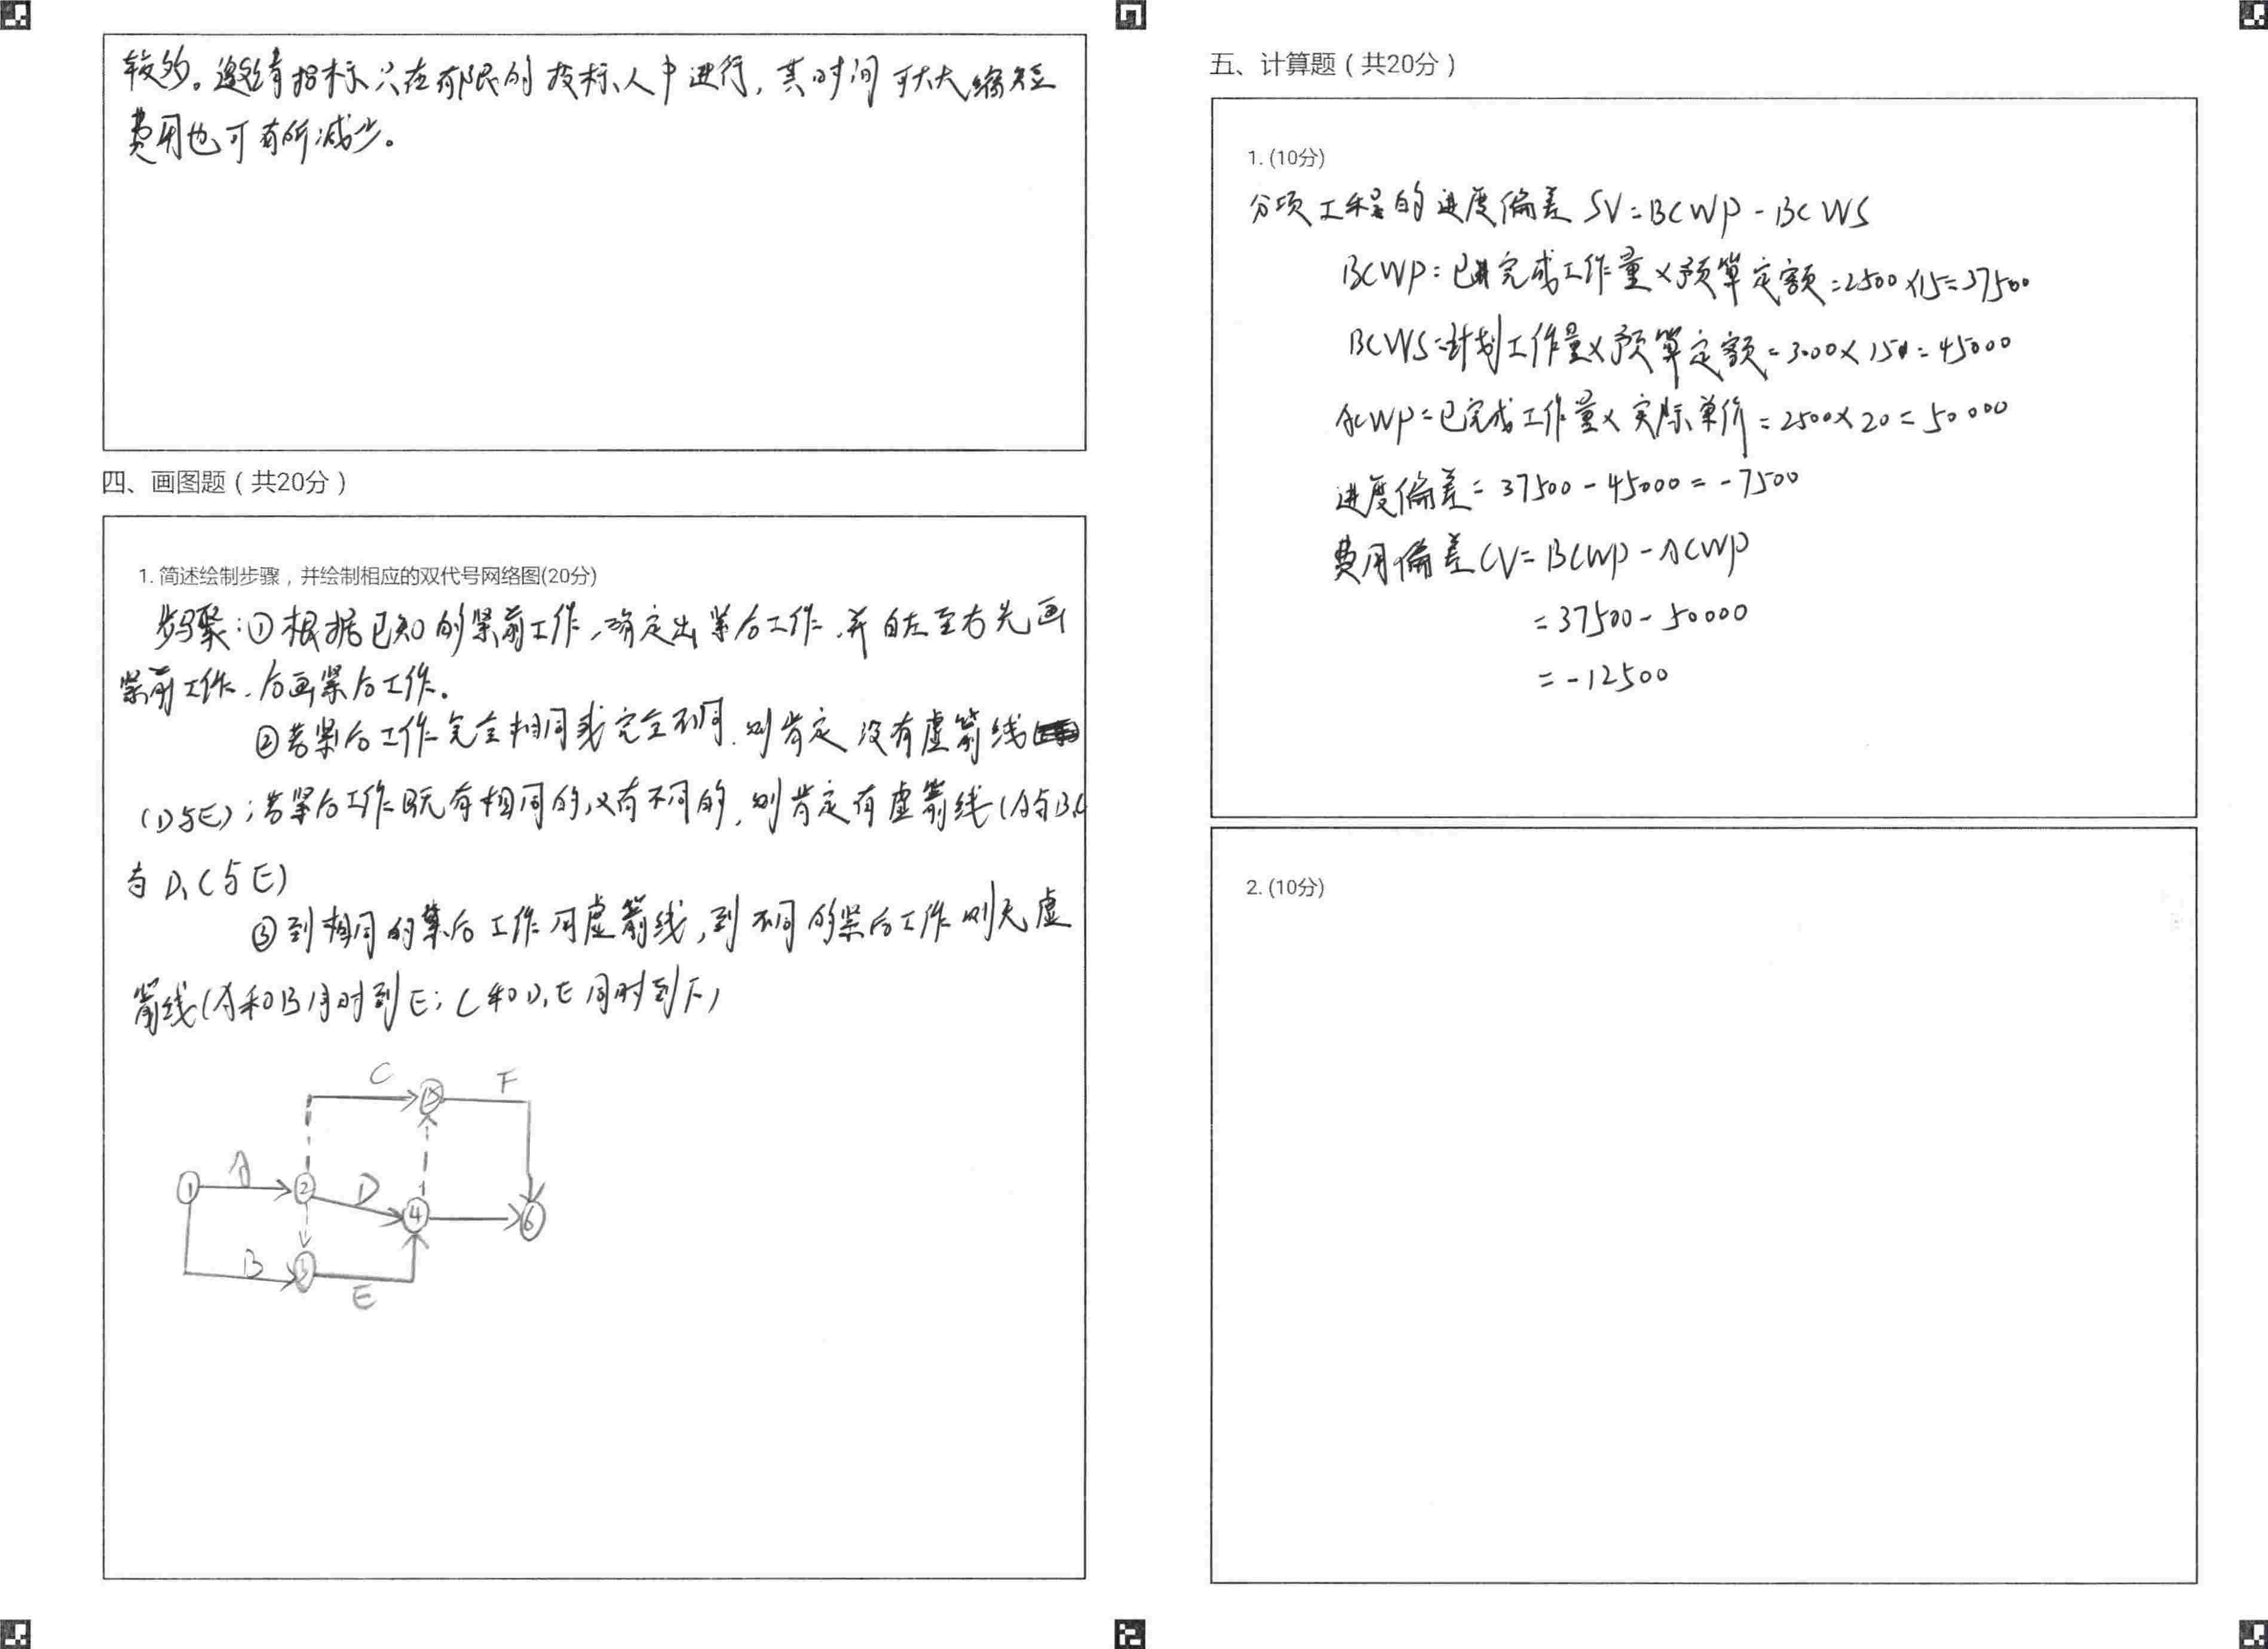 较多。邀请招标只在有限的投标人中进行,其时间可大大缩短
费用也可有所减少。
四、画图题(共20分)
1. 简述绘制步骤,并绘制相应的双代号网络图(20分)
步骤:①根据已知的紧前工作,确定出紧后工作,并自左至右先画
紧前工作,后画紧后工作。
②若紧后工作完全相同或完全不同,则肯定没有虚箭线
(D与E);若紧后工作既有相同的,又有不同的,则肯定有虚箭线(A与B,C
与D,C与E)
③到相同的紧后工作用虚箭线,到不同的紧后工作则无虚
箭线(A和B同时到E;C和D,E同时到F)
C
F
A
①
②
D
④
⑥
B
③
E
五、计算题(共20分)
1. (10分)
分项工程的进度偏差 SV=BCWP-BCWS
BCWP=已完成工作量×预算定额=2500×15=37500
BCWS=计划工作量×预算定额=3000×15=45000
ACWP=已完成工作量×实际单价=2500×20=50000
进度偏差=37500-45000=-7500
费用偏差CV=BCWP-ACWP
=37500-50000
=-12500
2. (10分)